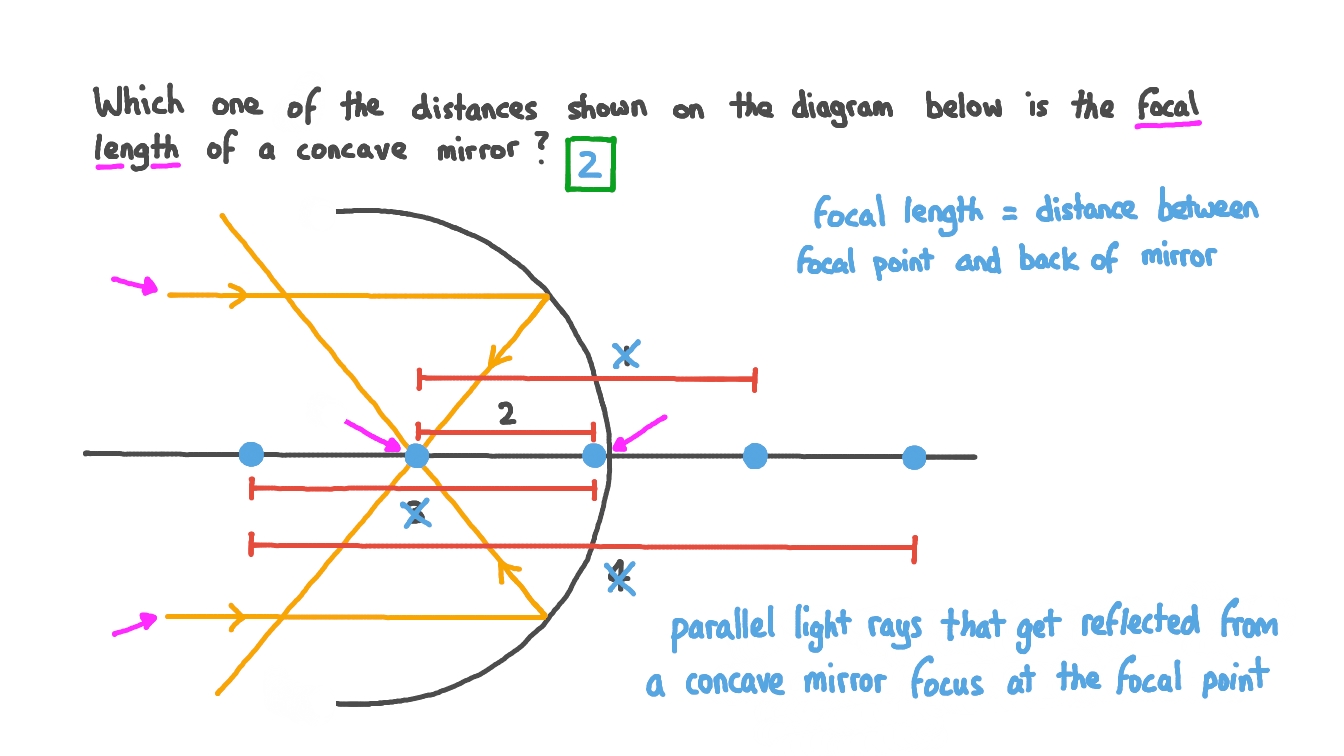 Which one of the distances shown on the diagram below is the focal
length of a concave mirror? 2
focal length = distance between
focal point and back of mirror
2
3
4
parallel light rays that get reflected from
a concave mirror focus at the focal point